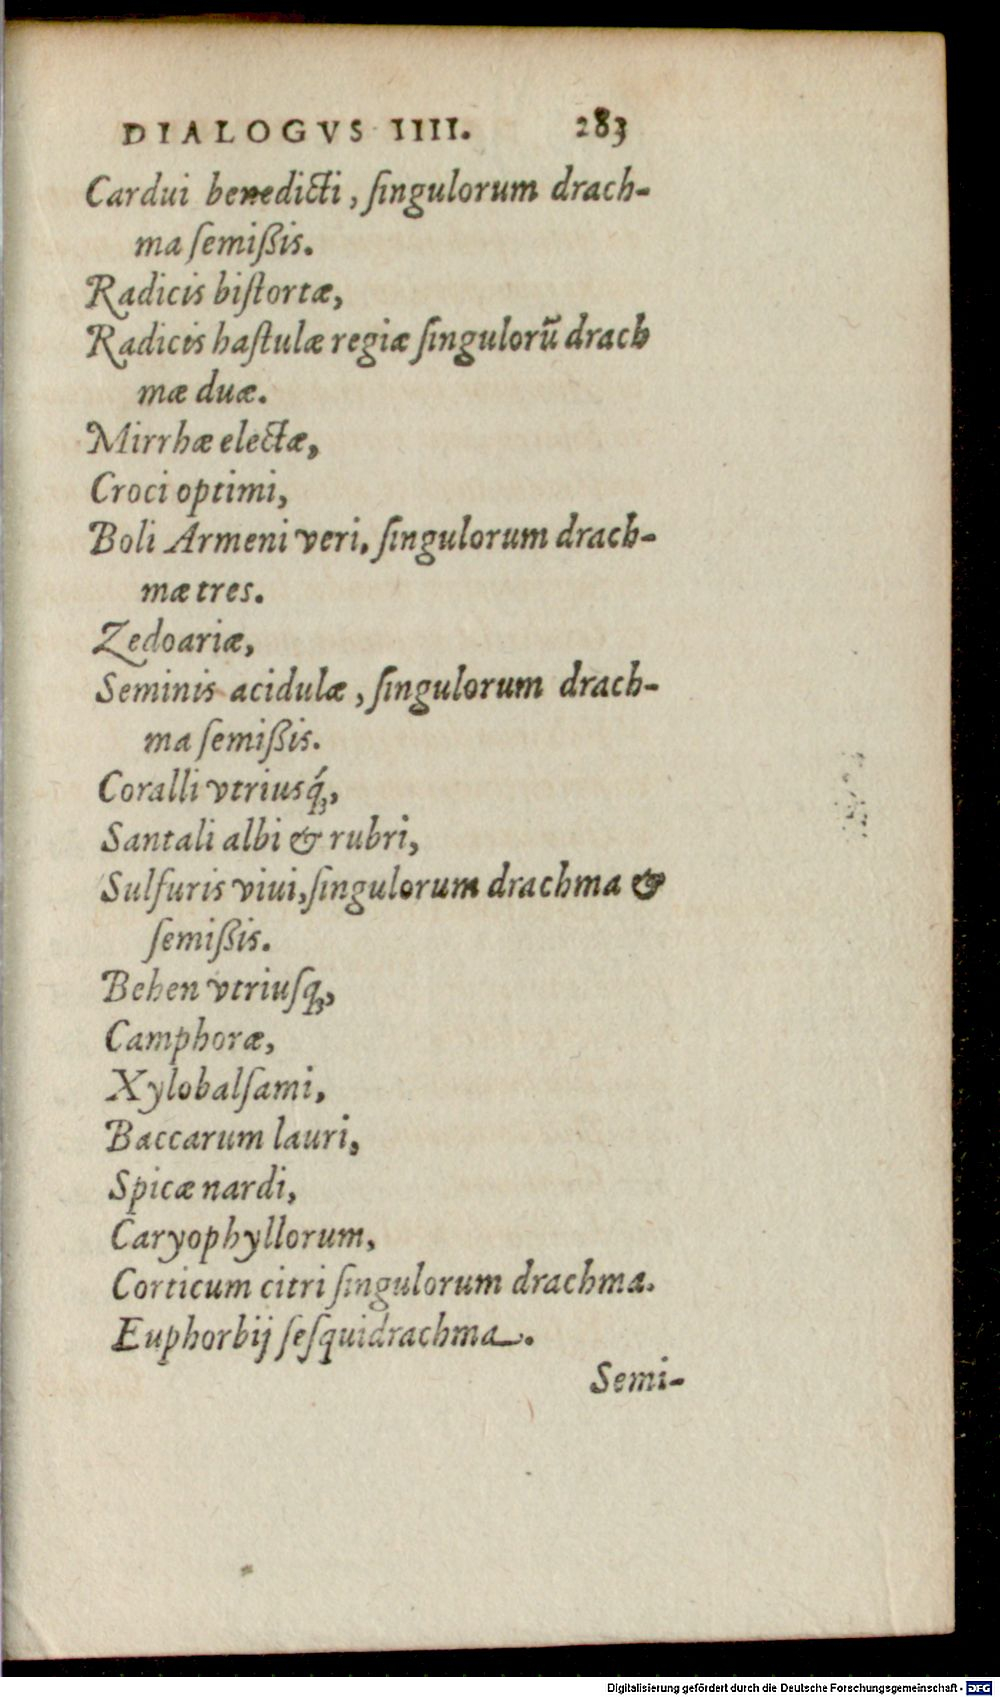 DIALOGVS IIII. 283
Cardui benedicti, ſingulorum drach-
ma ſemißis.
Radicis biſtortæ,
Radicis haſtulæ regiæ ſingulorũ drach
mæ duæ.
Mirrhæ electæ,
Croci optimi,
Boli Armeni veri, ſingulorum drach-
mæ tres.
Zedoariæ,
Seminis acidulæ, ſingulorum drach-
ma ſemißis.
Coralli vtriusq́;,
Santali albi & rubri,
Sulfuris viui, ſingulorum drachma &
ſemißis.
Behen vtriuſq;,
Camphoræ,
Xylobalſami,
Baccarum lauri,
Spicæ nardi,
Caryophyllorum,
Corticum citri ſingulorum drachma.
Euphorbij ſeſquidrachma.
Semi-
Digitalisierung gefördert durch die Deutsche Forschungsgemeinschaft - DFG